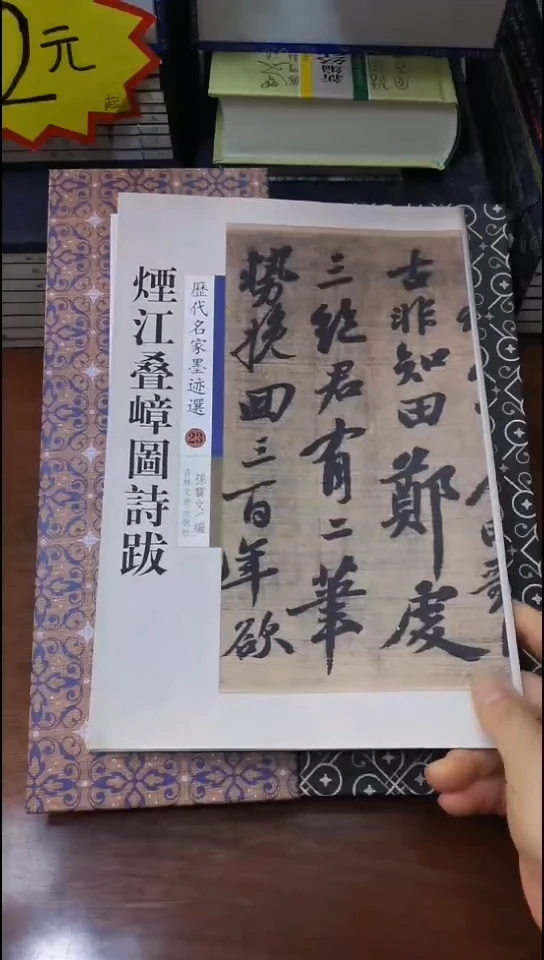 2元
起
煙江叠嶂圖詩跋
歷代名家墨迹選
23
孫寶文 編
吉林文史出版社
古非知田鄭虔
三絶君有二筆
勢挽回三百年欲